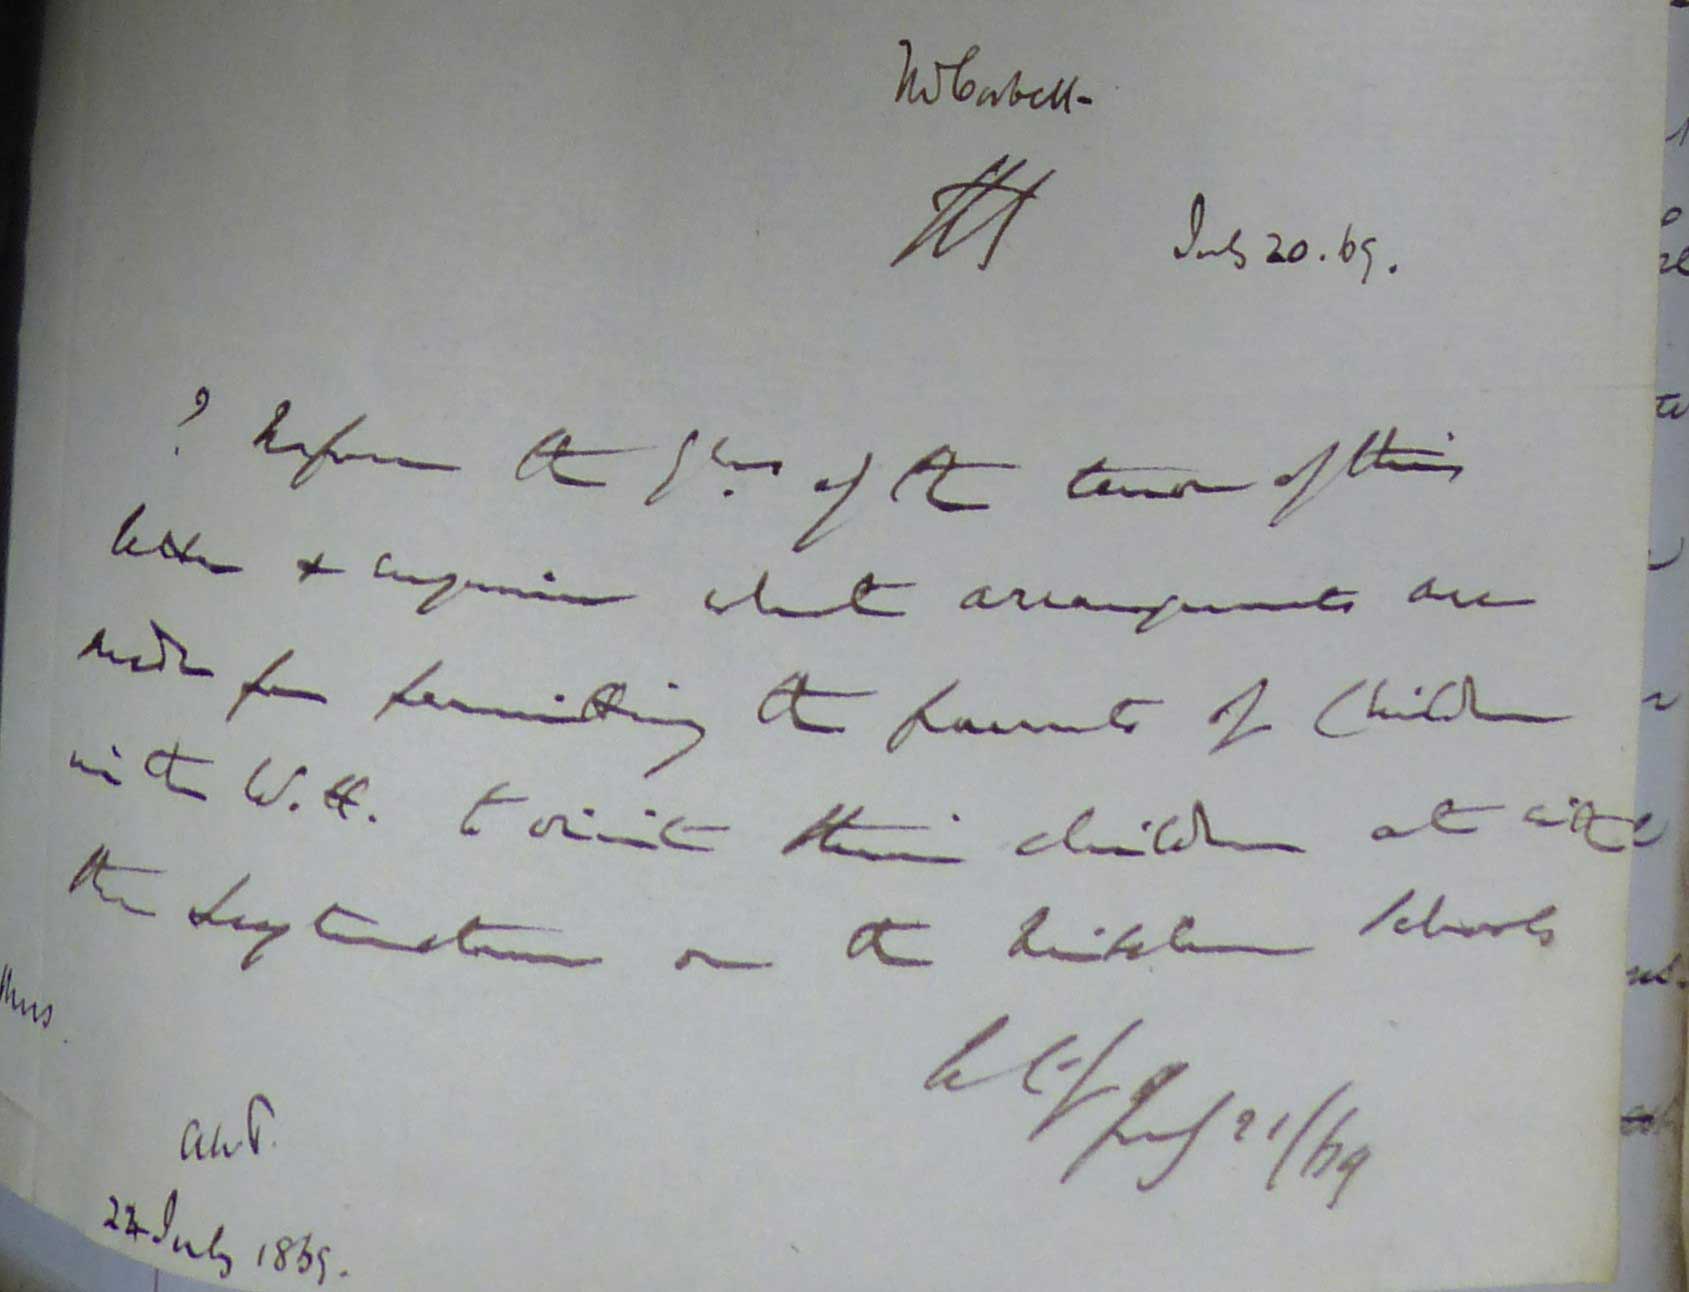 Mr Corbett -
July 20. 69.
? Inform the Gdns. of the tenor of this
letter & enquire what arrangements are
made for permitting the parents of Children
in the W.H. to visit their children at
the Leytonstone or the Schools
July 21/69
22 July 1869.